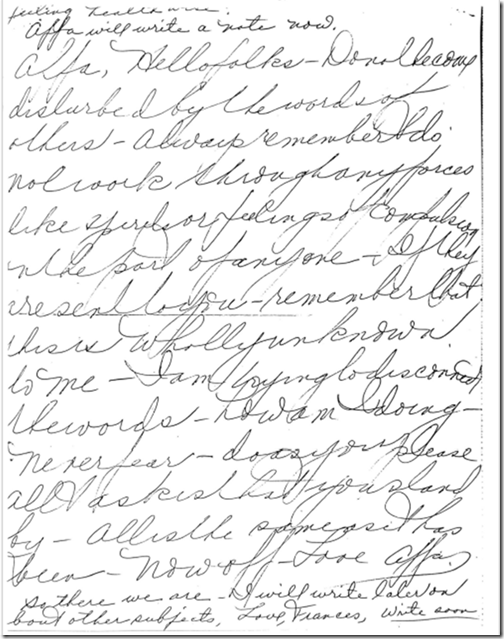 feeling 
Affa will write a note now.
Affa, Hello folks - Do not become
disturbed by the words of
others - always remember I do
not work through any forces
like spirits or feelings of compulsion
n the part of anyone - If they
resent to you - remember that
this is wholly unknown
to me - I am trying to disconnect
the words - how am I doing -
Never fear - do as you please
all I ask is that you stand
by - all is the same as it has
been - Now off - Love Affa.
So there we are - I will write later on
bout other subjects, Love, Frances, write soon